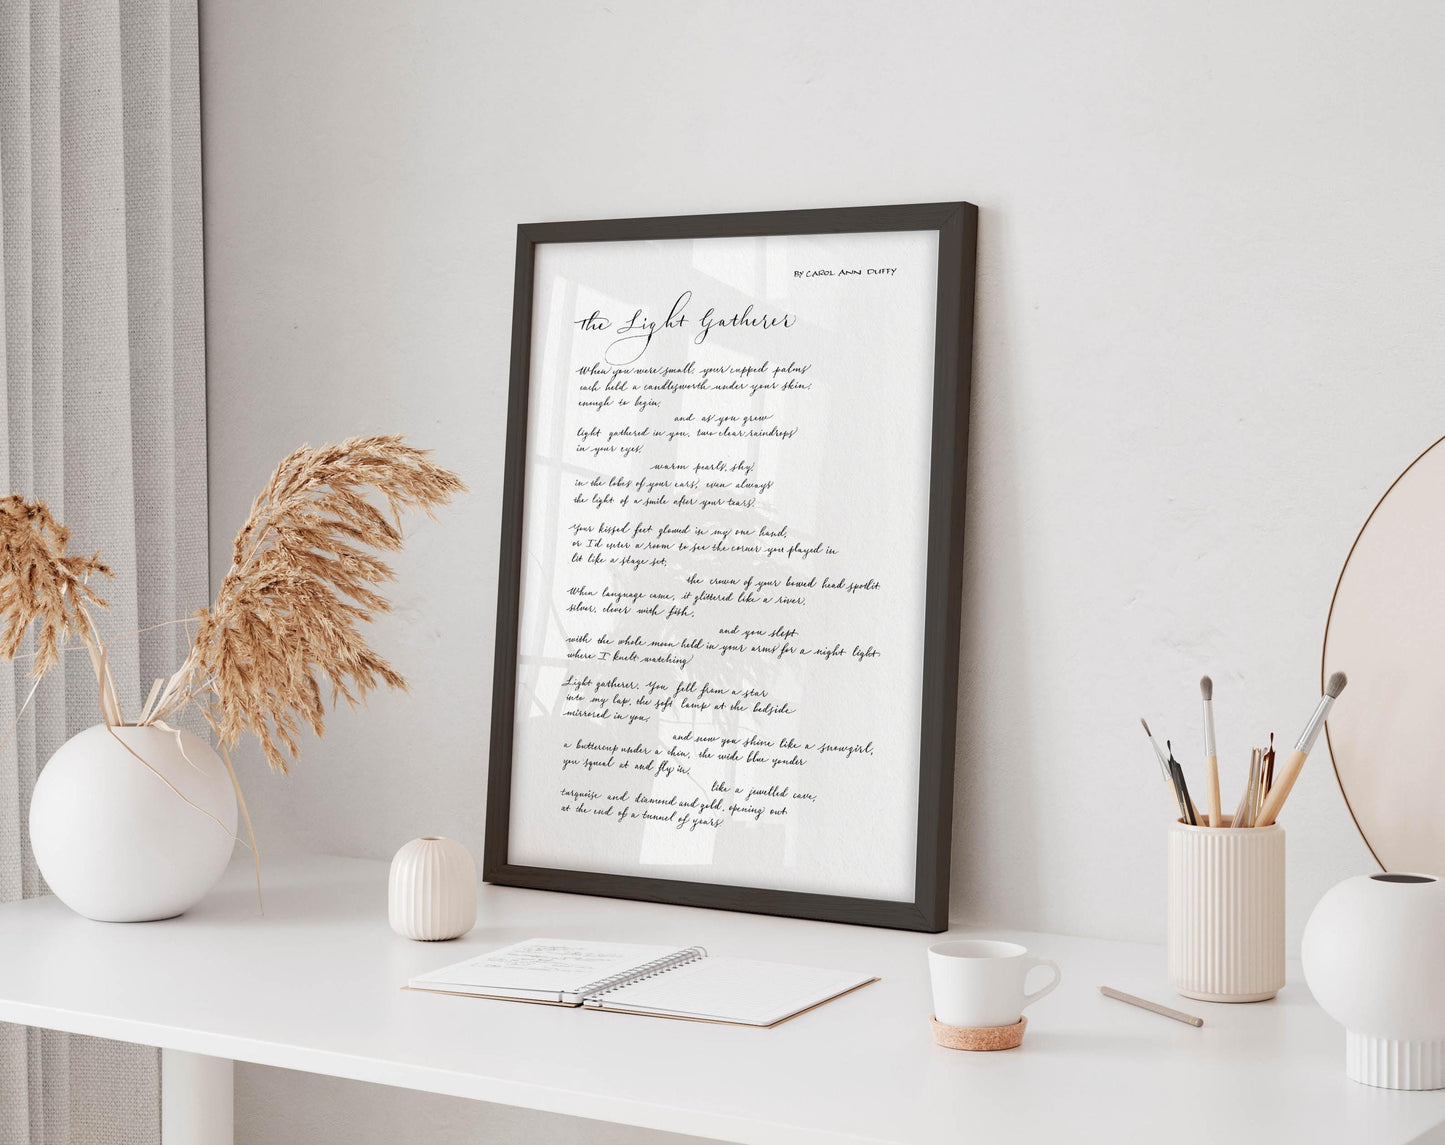 BY CAROL ANN DUFFY
The Light Gatherer
When you were small, your cupped palms
each held a candlesworth under your skin,
enough to begin,
and as you grew
light gathered in you, two clear raindrops
in your eyes,
warm pearls, shy,
in the lobes of your ears, even always
the light of a smile after your tears.
Your kissed feet glowed in my one hand,
or I'd enter a room to see the corner you played in
lit like a stage set,
the crown of your bowed head spotlit.
When language came, it glittered like a river,
silver, clever with fish,
and you slept
with the whole moon held in your arms for a night light
where I knelt watching
Light gatherer. You fell from a star
into my lap, the soft lamp at the bedside
mirrored in you,
and now you shine like a snowgirl,
a buttercup under a chin, the wide blue yonder
you squeal at and fly in,
like a jewelled cave,
turquoise and diamond and gold, opening out
at the end of a tunnel of years